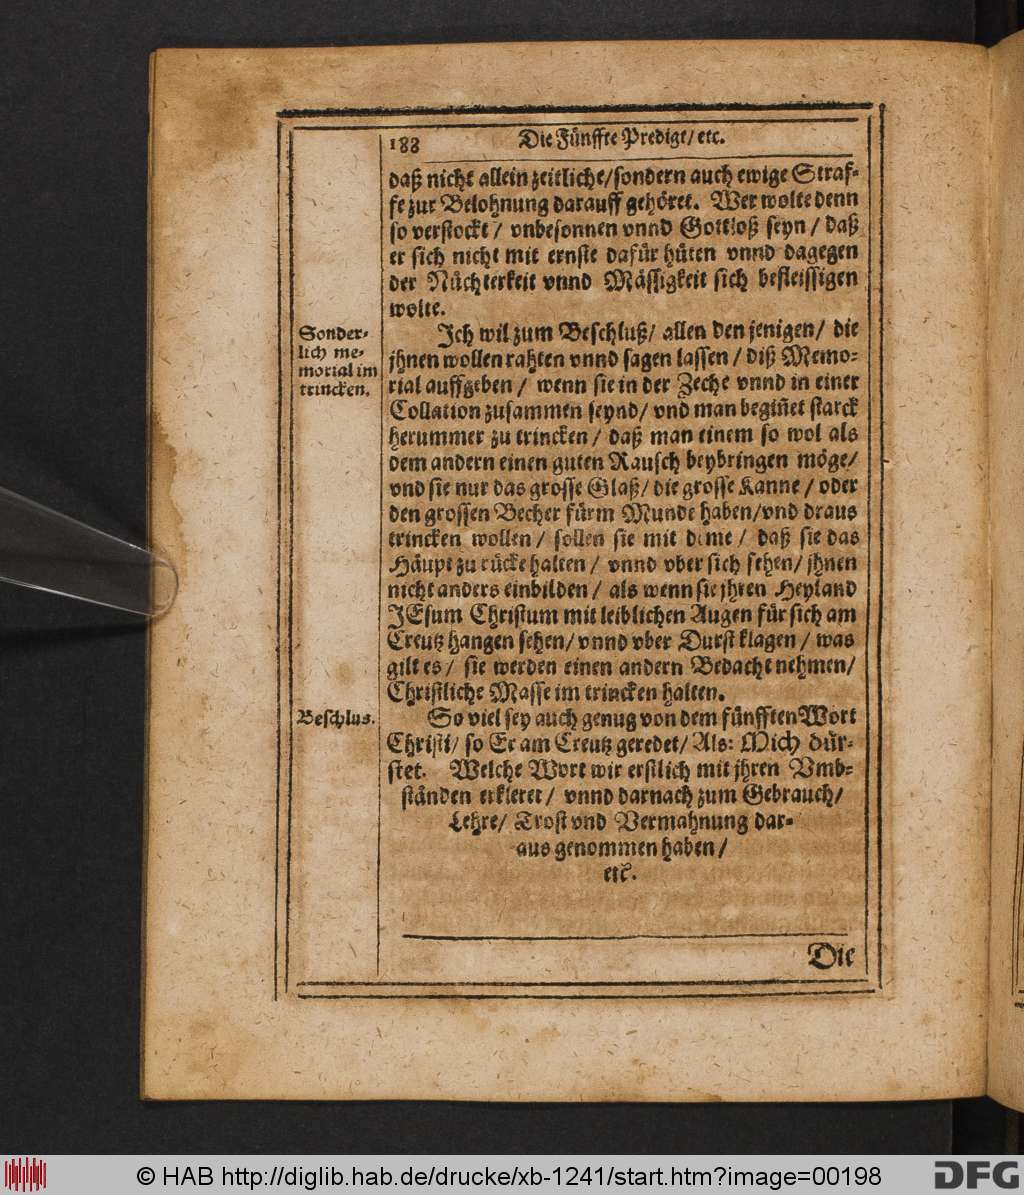 188 Die Fünffte Predigt/ etc.
daß nicht allein zeitliche/sondern auch ewige Straf-
fe zur Belohnung darauff gehöret. Wer wolte denn
so verstockt/ vnbesonnen vnnd Gottloß seyn/ daß
er sich nicht mit ernste dafür hüten vnnd dagegen
der Nüchterkeit vnnd Mässigkeit sich befleissigen
wolte.
Ich wil zum Beschluß/ allen den jenigen/ die
Sonder-
lich me-
morial im
trincken.
jhnen wollen rahten vnnd sagen lassen/ diß Memo-
rial auffgeben/ wenn sie in der Zeche vnnd in einer
Collation zusammen seynd/ vnd man begiñet starck
herummer zu trincken/ daß man einem so wol als
dem andern einen guten Rausch beybringen möge/
vnd sie nur das grosse Glaß/ die grosse Kanne/ oder
den grossen Becher fürm Munde haben/vnd draus
trincken wollen/ sollen sie mit deme/ daß sie das
Häupt zu rücke halten/ vnnd vber sich sehen/ jhnen
nicht anders einbilden/ als wenn sie jhren Heyland
JEsum Christum mit leiblichen Augen für sich am
Creutz hangen sehen/ vnnd vber Durst klagen/ was
gilt es/ sie werden einen andern Bedacht nehmen/
Christliche Masse im trincken halten.
Beschlus.
So viel sey auch genug von dem fünfften Wort
Christi/ so Er am Creutz geredet/ Als: Mich dür-
stet. Welche Wort wir erstlich mit jhren Vmb-
ständen erkleret/ vnnd darnach zum Gebrauch/
Lehre/ Trost vnd Vermahnung dar-
aus genommen haben/
etc.
Die
© HAB http://diglib.hab.de/drucke/xb-1241/start.htm?image=00198
DFG